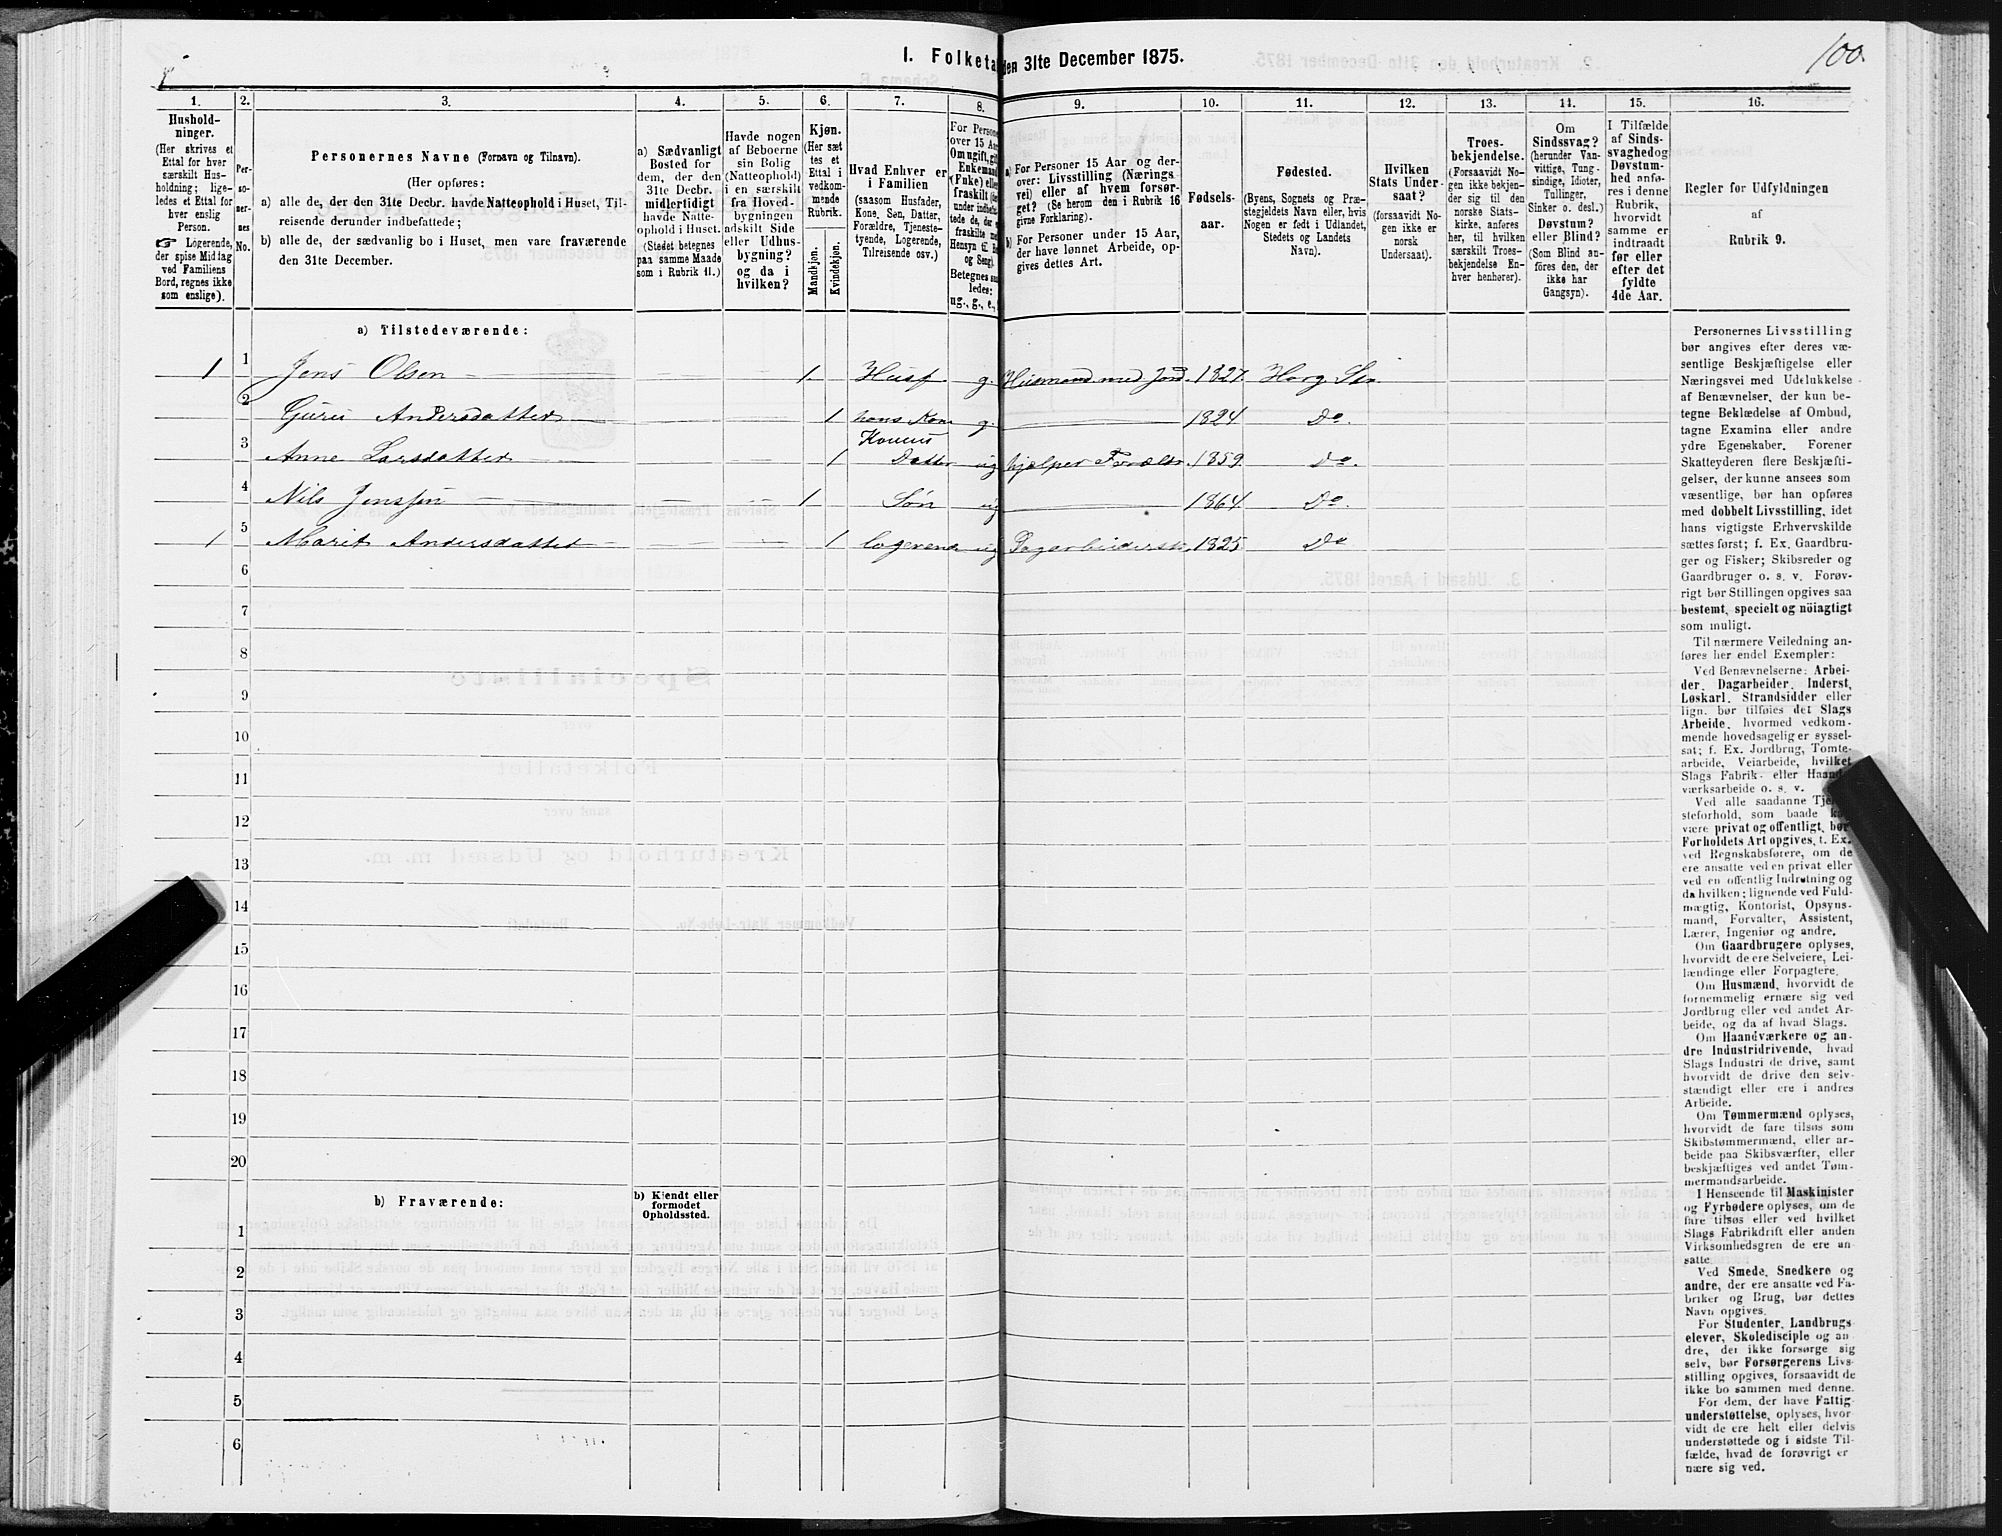 1. Folketa den 31te December 1875.
100.
1. 2. 3. 4. 5. 6. 7. 8. 9. 10. 11. 12. 13. 14. 15. 16.
Hushold-
ninger.
(Her skrives et
Ettal for hver
særskilt Hus-
holdning; lige-
ledes et Ettal for
hver enslig
Person.
☞ Logerende,
der spise Middag
ved Familiens
Bord, regnes ikke
som enslige).
Per-
so-
ner-
nes
No.
Personernes Navne (Fornavn og Tilnavn).
(Her opføres:
a) alle de, der den 31te Decbr. havde Natteophold i Huset, Til-
reisende derunder indbefattede;
b) alle de, der sædvanlig bo i Huset, men vare fraværende
den 31te December.
a) Sædvanligt
Bosted for
dem, der den
31te Decbr.
midlertidigt
havde Natte-
ophold i Huset.
(Stedet betegnes
paa samme Maade
som i Rubrik 11.)
Havde nogen
af Beboerne
sin Bolig
(Natteophold)
i en særskilt
fra Hoved-
bygningen
adskilt Side
eller Udhus-
bygning?
og da i
hvilken?
Kjøn.
(Her sæt
tes et
Ettal i
vedkom-
mende
Rubrik.
Mandkjøn.
Kvindekjøn.
Hvad Enhver er
i Familien
(saasom Husfader,
Kone, Søn, Datter,
Forældre, Tjeneste-
tyende, Logerende,
Tilreisende osv.)
For Persone
over 15 Aar
Om ugift, gif
Enkemand
(Enke) elle
fraskilt (he
under indbefa
tede de, der e
fraskilte me
Hensyn til B
og Seng).
Betegnes saa
ledes:
ug., g., e.,
a) For Personer 15 Aar og der-
over: Livsstilling (Nærings
vei) eller af hvem forsør-
get? (Se herom den i Rubrik 16
givne Forklaring).
b) For Personer under 15 Aar,
der have lønnet Arbeide, op-
gives dettes Art.
Fødsels-
aar.
Fødested.
(Byens, Sognets og Præ-
stegjeldets Navn eller, hvis
Nogen er født i Udlandet,
Stedets og Landets
Navn).
Hvilken
Stats Under-
saat?
(forsaavidt No-
gen ikke er
norsk
Undersaat).
Troes-
bekjendelse.
(Forsaavidt No-
gen ikke bekjen-
der sig til den
norske Stats-
kirke, anføres
her, til hvilken
særskilt Troes-
bekjendelse En-
hver henhører).
Om
Sindssvag?
(herunder Van-
vittige, Tung-
sindige, Idioter,
Tullinger,
Sinker o. desl.)
Døvstum?
eller Blind?
(Som Blind an-
føres den, der
ikke har
Gangsyn).
I Tilfælde
af Sinds-
svaghed og
Døvstum-
hed anfø-
res i denne
Rubrik,
hvorvidt
samme er
indtraadt
før eller
efter det
fyldte
4de Aar.
Regler for Udfyldningen
af
Rubrik 9.
a) Tilstedeværende:
1 1 Jens Olsen 1. Husf g. Husmand med Jord. 1827. Horg
2 Guru Andersdatter 1 hans Kone g. 1824 Do
3 Anne Larsdatter 1 Konens Datter ug hjælper Forældr. 1859. Do.
4 Nils Jenssen 1 Søn ug 1864. Do.
1 5 Marit Andersdatter 1 logerende ug 1825 Do
6
7
8
9
10
11
12
13
14
15
16
17
18
19
20
b) Fraværende:
b) Kjendt eller
formodet
Opholdssted.
1
2
3
4
5
6
Personernes Livsstilling
bør angives efter deres væ-
sentlige Beskjæftigelse eller
Næringsvei med Udelukkelse
af Benævnelser, der kun be-
tegne Beklædelse af Ombud,
tagne Examina eller andre
ydre Egenskaber. Forener
Skatteyderen flere Beskjæfti-
gelser, der kunne ansees som
væsentlige, bør han opføres
med dobbelt Livsstilling, idet
hans vigtigste Erhvervskilde
sættes først; f. Ex. Gaardbru-
ger og Fisker; Skibsreder og
Gaardbruger o. s. v. Forøv-
rigt bør Stillingen opgives saa
bestemt, specielt og nöiagtigt
som muligt.
Til nærmere Veiledning an-
føres her endel Exempler:
Ved Benævnelserne: Arbei-
der, Dagarbeider, Inderst,
Løskarl, Strandsidder eller
lign. bør tilføies det Slags
Arbeide, hvormed vedkom-
mende hovedsagelig er syssel-
sat; f. Ex. Jordbrug, Tomte-
arbeide, Veiarbeide, hvilket
Slags Fabrik- eller Haand-
værksarbeide o. s. v.
Ved alle saadanne Tje
steforhold, som baade k
være privat og offentligt, bør
Forholdets Art opgives, t. Ex.
ved Regnskabsførere, om de
ere ansatte ved en privat eller
ved en offentlig Indretning og
da hvilken; lignende ved Fuld-
mægtig, Kontorist, Opsyns-
mand, Forvalter, Assistent,
Lærer, Ingeniør og andre.
Om Gaardbrugere oplyses,
hvorvidt de ere Selveiere, Lei-
lændinge eller Forpagtere.
Om Husmænd, hvorvidt de
fornemmelig ernære sig ved
Jordbrug eller ved andet Ar-
beide, og da af hvad Slags.
Om Haandværkere og an-
dre Industridrivende, hvad
Slags Industri de drive, samt
hvorvidt de drive den selv-
stændigt eller ere i andres
Arbeide.
Om Tømmermænd oplyses,
hvorvidt de fare tilsøs som
Skibstømmermænd, eller ar-
beide paa Skibsværfter, eller
beskjæftiges ved andet Tøm-
mermandsarbeide.
I Henseende til Maskinister
og Fyrbødere oplyses, om de
fare tilsøs eller ved hvilket
Slags Fabrikdrift eller anden
Virksomhedsgren de ere an-
satte.
Ved Smede, Snedkere og
andre, der ere ansatte ved Fa-
briker og Brug, bør dettes
Navn opgives.
For Studenter, Landbrugs-
elever, Skoledisciple og an-
dre, der ikke forsørge sig
selv, bør Forsørgerens Livs-
stilling opgives, forsaavidt de
ikke bo sammen med denne.
For dem, der have Fattig-
understøttelse, oplyses, hvor-
vidt de ere helt eller delvis
understøttede og i sidste Til-
fælde, hvad de forøvrigt er
nære sig ved.